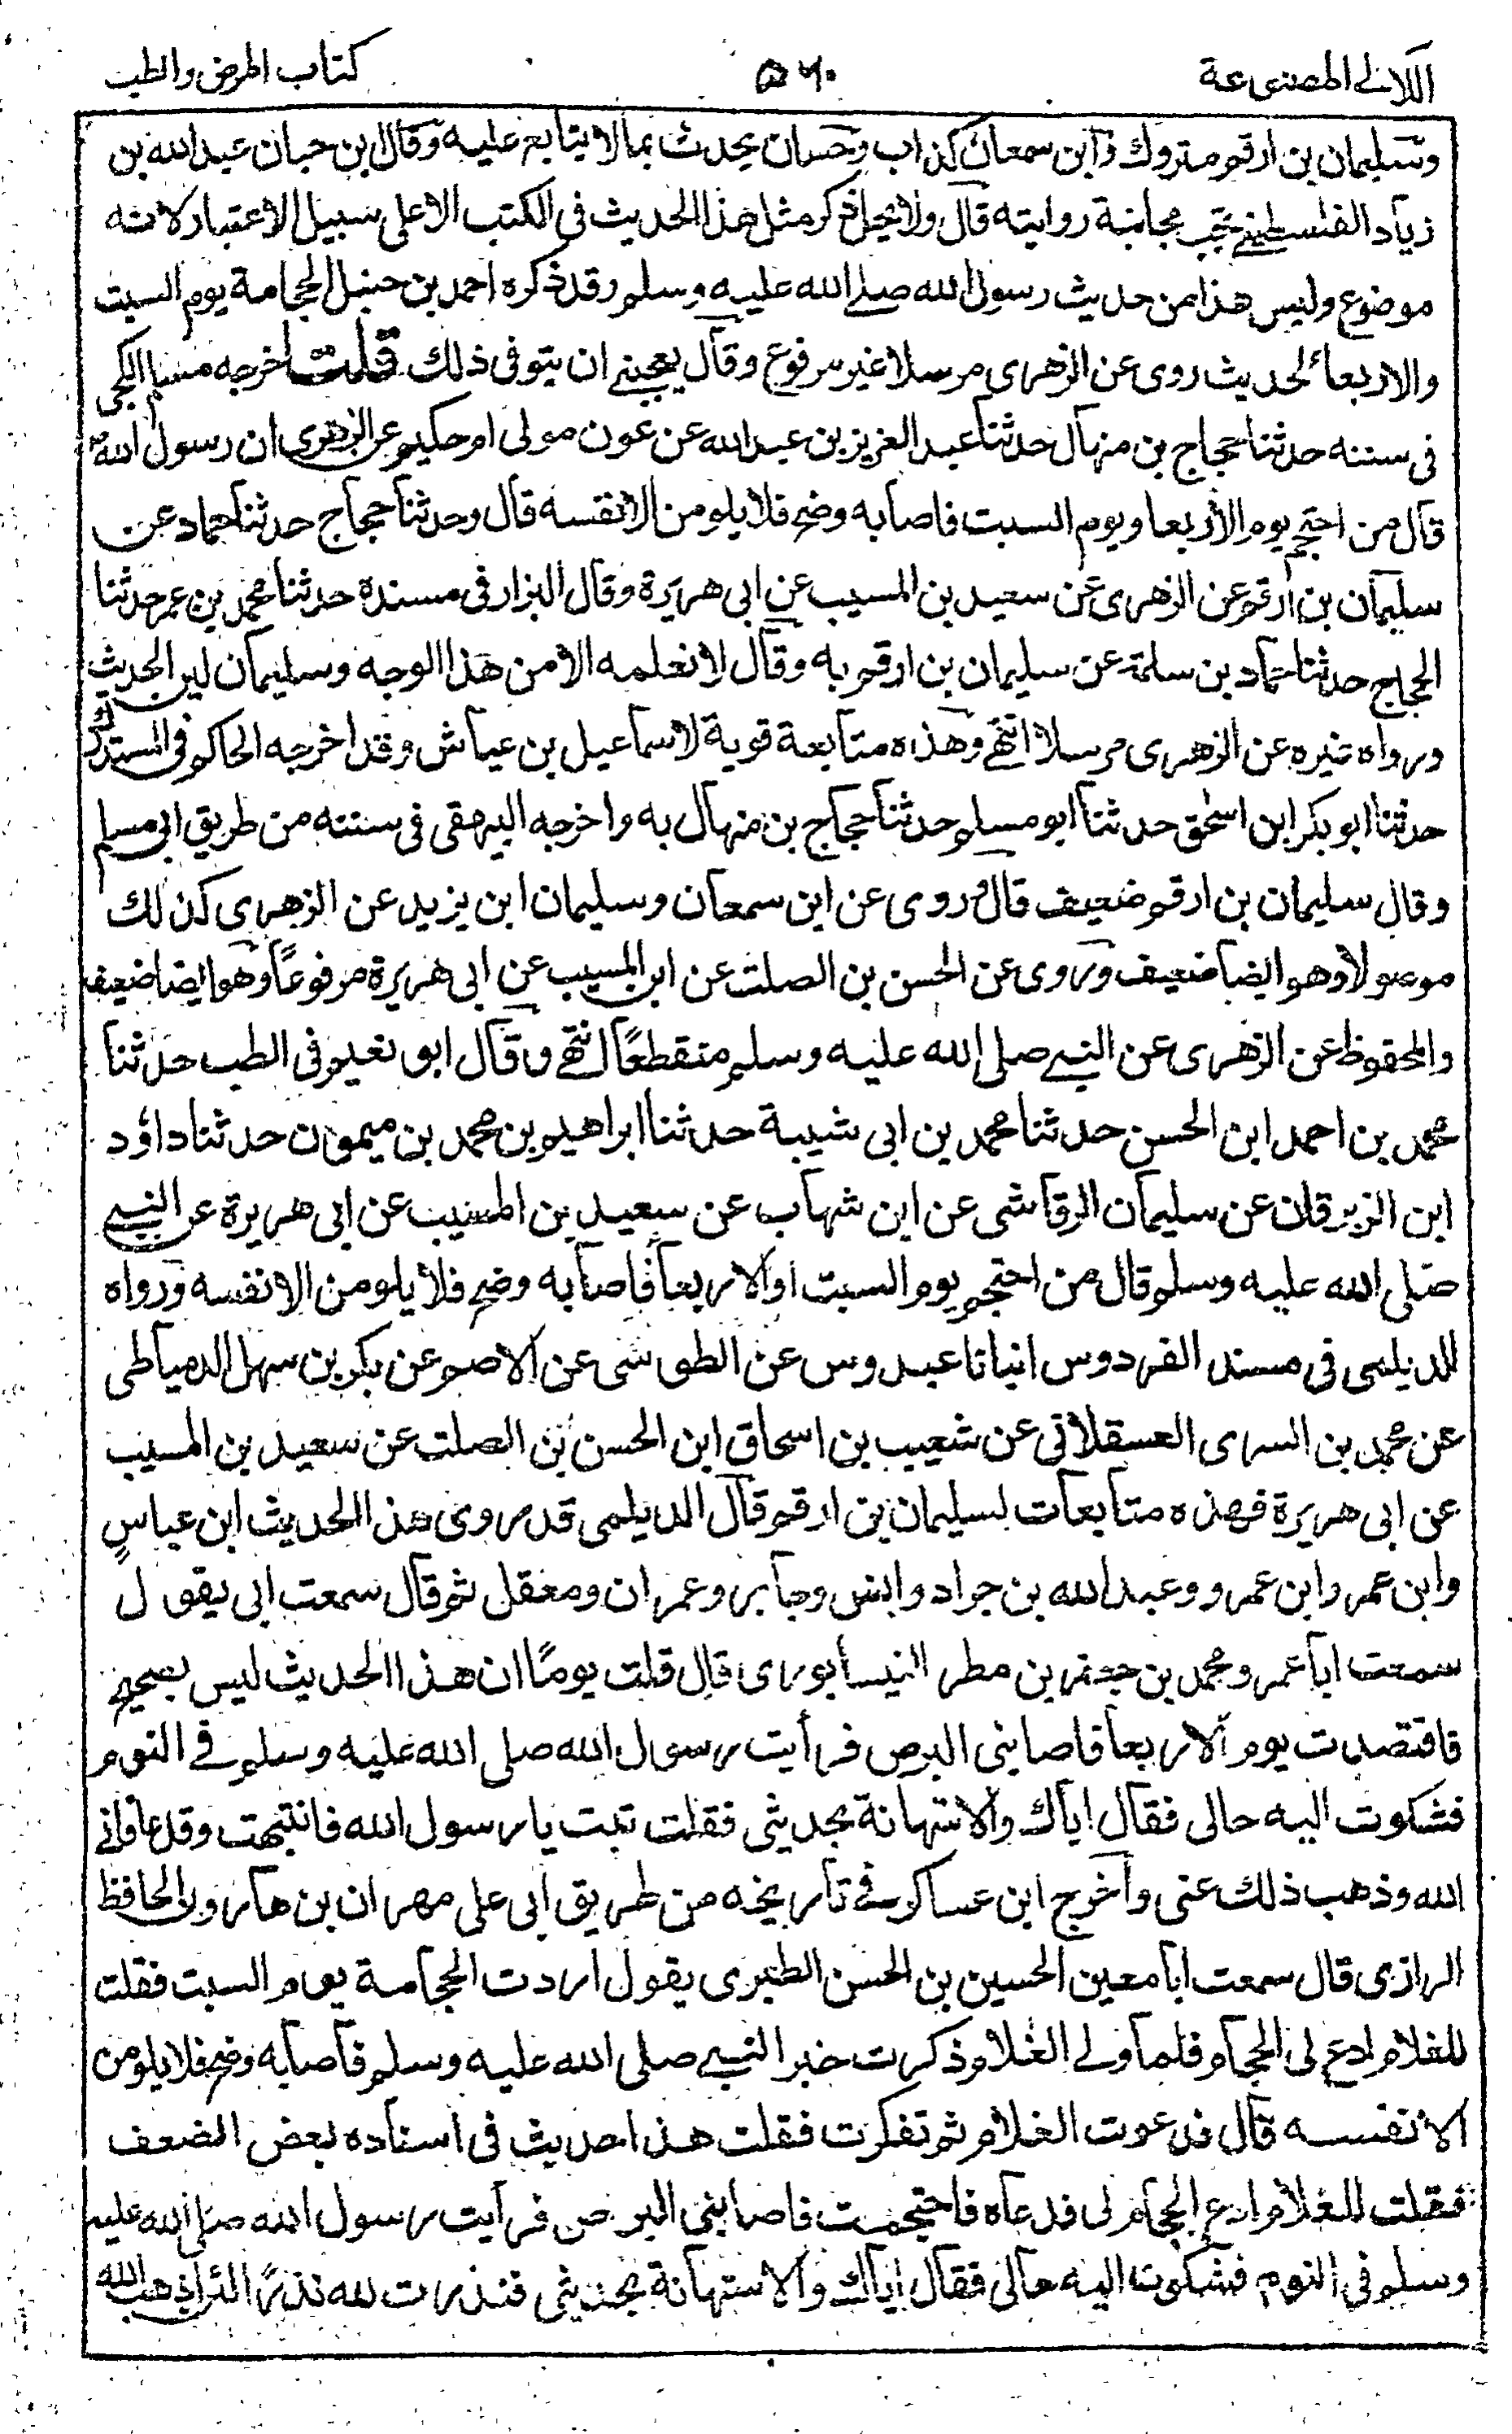 اللآلى المصنوعة
٥٦٠
كتاب المرض والطب
وسليمان بن ارقم متروك وابن سمعان كذاب وحسان يحدث بما لا يتابع عليه وقال ابن حبان عبد الله بن
زياد الفلسطينى يجب مجانبة روايته قال ولا يحل ذكر مثل هذا الحديث فى الكتب الا على سبيل الاعتبار لانه
موضوع وليس هذا من حديث رسول الله صلى الله عليه وسلم وقد ذكره احمد بن حنبل الحجامة يوم السبت
والاربعا لحديث روى عن الزهرى مرسلا غير مرفوع وقال يعجبنى ان يتوقى ذلك قلت اخرجه مسلم الكجى
فى سننه حدثنا حجاج بن منهال حدثنا عبد العزيز بن عبد الله عن عون مولى ام حكيم عن الزهرى ان رسول الله
قال من احتجم يوم الاربعا ويوم السبت فاصابه وضح فلا يلومن الا نفسه قال وحدثنا حجاج حدثنا حماد عن
سليمان بن ارقم عن الزهرى عن سعيد بن المسيب عن ابى هريرة وقال البزار فى مسنده حدثنا محمد بن عمر حدثنا
الحجاج حدثنا حماد بن سلمة عن سليمان بن ارقم به وقال لا نعلمه الا من هذا الوجه وسليمان لين الحديث
ورواه غيره عن الزهرى مرسلا انتهى وهذه متابعة قوية لاسماعيل بن عياش وقد اخرجه الحاكم فى المستدرك
حدثنا ابو بكر ابن اسحق حدثنا ابو مسلم حدثنا حجاج بن منهال به واخرجه البيهقى فى سننه من طريق ابى مسلم
وقال سليمان بن ارقم ضعيف قال وروى عن ابن سمعان وسليمان ابن يزيد عن الزهرى كذلك
موصولا وهو ايضا ضعيف وروى عن الحسن بن الصلت عن ابن المسيب عن ابى هريرة مرفوعاً وهو ايضا ضعيف
والمحفوظ عن الزهرى عن النبى صلى الله عليه وسلم منقطعاً انتهى وقال ابو نعيم فى الطب حدثنا
محمد بن احمد ابن الحسن حدثنا محمد بن ابى شيبة حدثنا ابراهيم بن محمد بن ميمون حدثنا داؤد
ابن الزبرقان عن سليمان الرقاشى عن ابن شهاب عن سعيد بن المسيب عن ابى هريرة عن النبى
صلى الله عليه وسلم قال من احتجم يوم السبت او الاربعا فاصابه وضح فلا يلومن الا نفسه ورواه
الديلمى فى مسند الفردوس انبانا عبدوس عن الطوسى عن الاصم عن بكر بن سهل الدمياطى
عن محمد بن السرى العسقلانى عن شعيب بن اسحاق ابن الحسن بن الصلت عن سعيد بن المسيب
عن ابى هريرة فهذه متابعات لسليمان بن ارقم قال الديلمى قد روى هذا الحديث ابن عباسٍ
وابن عمر وابن عمرو وعبد الله بن جراد وانس وجابر وعمران ومعقل ثم قال سمعت ابى يقول
سمعت ابا عمرو محمد بن جعفر بن مطر النيسابورى قال قلت يوماً ان هذا الحديث ليس بصحيح
فافتصدت يوم الاربعا فاصابنى البرص فرأيت رسول الله صلى الله عليه وسلم فى النوم
فشكوت اليه حالى فقال اياك والاستهانة بحديثى فقلت تبت يا رسول الله فانتبهت وقد عافانى
الله وذهب ذلك عنى وأخرج ابن عساكر فى تاريخه من طريق ابى على مهران بن هارون الحافظ
الرازى قال سمعت ابا معين الحسين بن الحسن الطبرى يقول اردت الحجامة يوم السبت فقلت
للغلام ادع لى الحجام فلما ولى الغلام ذكرت خبر النبى صلى الله عليه وسلم فاصابه وضح فلا يلومن
الا نفسه قال فدعوت الغلام ثم تفكرت فقلت هذا حديث فى اسناده بعض الضعف
فقلت للغلام ادع الحجام لى فدعاه فاحتجمت فاصابنى البرص فرأيت رسول الله صلى الله عليه
وسلم فى النوم فشكوت اليه حالى فقال اياك والاستهانة بحديثى فنذرت لله نذرًا لئن اذهب الله